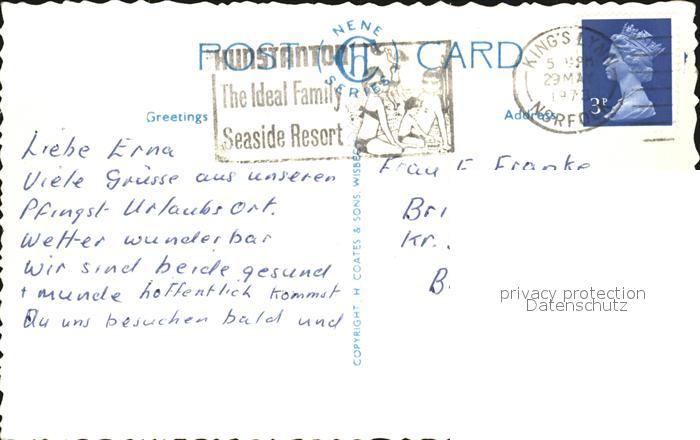 POST CARD
NENE
CH
SERIES
HUNSTANTON
The Ideal Family
Seaside Resort
KING'S LYNN
29 MAY
NORFOLK
3P
Greetings
Address
Liebe Erna
Viele Grüsse aus unseren
Pfingst-Urlaubsort.
Wetter wunderbar
wir sind beide gesund
+ munde hoffentlich kommst
Du uns besuchen bald und
COPYRIGHT. H. COATES & SONS. WISBE
Frau E. Franke
Bri
Kr.
B
privacy protection
Datenschutz